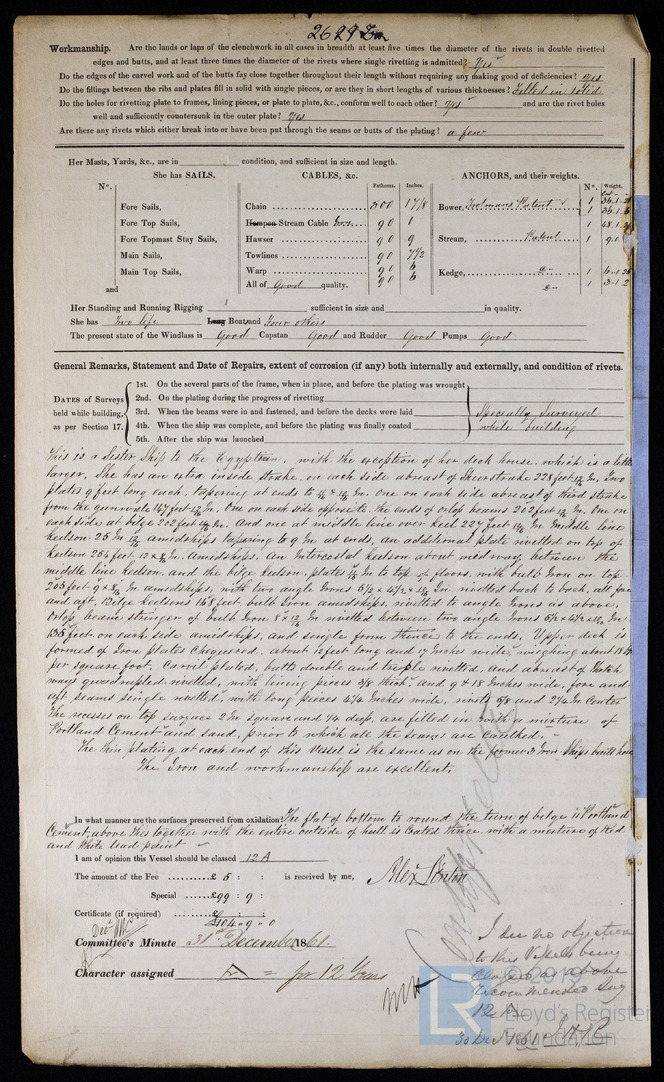 2629 Irn
Workmanship. Are the lands or laps of the clenchwork in all cases in breadth at least five times the diameter of the rivets in double rivetted
edges and butts, and at least three times the diameter of the rivets where single rivetting is admitted? Yes
Do the edges of the carvel work and of the butts fay close together throughout their length without requiring any making good of deficiencies? Yes
Do the fillings between the ribs and plates fill in solid with single pieces, or are they in short lengths of various thicknesses? Filled in solid
Do the holes for rivetting plate to frames, lining pieces, or plate to plate, &c., conform well to each other? Yes and are the rivet holes
well and sufficiently countersunk in the outer plate? Yes
Are there any rivets which either break into or have been put through the seams or butts of the plating? a few
Her Masts, Yards, &c., are in condition, and sufficient in size and length.
She has SAILS. CABLES, &c. ANCHORS, and their weights.
N°. Fathoms. Inches. N°. Weight.
Fore Sails, Chain 300 1 7/8 Bower, Trotmans Patent 1
Fore Top Sails, Hempen Stream Cable Iron 90 1
Fore Topmast Stay Sails, Hawser 90 9 Stream, Patent 1
Main Sails, Towlines 90 7 1/2
Main Top Sails, Warp 90 6 Kedge, do 1
and All of Good quality. 90 6 do 1
Her Standing and Running Rigging sufficient in size and in quality.
She has Two life Long Boat and Four others
The present state of the Windlass is Good Capstan Good and Rudder Good Pumps Good
General Remarks, Statement and Date of Repairs, extent of corrosion (if any) both internally and externally, and condition of rivets.
DATES of Surveys held while building, as per Section 17.
1st. On the several parts of the frame, when in place, and before the plating was wrought
2nd. On the plating during the progress of rivetting
3rd. When the beams were in and fastened, and before the decks were laid Specially Surveyed
4th. When the ship was complete, and before the plating was finally coated while building
5th. After the ship was launched
This is a Sister Ship to the Egyptian, with the exception of her deck house, which is a little
larger, She has an extra inside strake on each side abreast of Sheerstrake 228 feet In. Two
plates 9 feet long each, tapering at ends to In. One on each side abreast of third strake
from the gunwale 147 feet In. One on each side opposite the ends of orlop beams 202 feet In. One on
each side at bilge 202 feet In. And one at middle line over Keel 224 feet In. Middle line
Keelson 25 In amidships tapering to 9 In at ends, an additional plate rivetted on top of
Keelson 254 feet In. Amidships. An Intercostal Keelson about midway between the
middle line Keelson and the bilge Keelson, plates In to top of floors, with bulb Iron on top
205 feet In amidships, with two angle Irons In rivetted back to back, all fore
and aft, Bilge Keelsons 148 feet, bulb Iron amidships rivetted to angle Irons as above,
Orlop beam stringer of bulb Iron In rivetted between two angle Irons In
135 feet on each side amidships, and single from thence to the ends. Upper deck is
formed of Iron plates Chequered, about 12 feet long and 17 Inches wide, weighing about
per square foot, Carvil plated, butts double and treple rivetted, and abreast of Hatch
ways quadrupled rivetted, with lining pieces 3/8 thick, and 9 & 18 Inches wide, fore and
aft seams single rivetted, with long pieces 4 1/4 Inches wide, rivets 5/8 and 2 1/4 In Center
The recesses on top surface 2 In square and 1/4 deep, are filled in with a mixture of
Portland Cement and sand, prior to which all the seams are caulked.
The thin plating at each end of this Vessel is the same as on the former 3 Iron Ships built here
The Iron and workmanship are excellent.
In what manner are the surfaces preserved from oxidation The flat of bottom to round the turn of bilge is Portland
Cement, above this together with the entire outside of hull is Coated thrice with a mixture of Red
and White lead paint
I am of opinion this Vessel should be classed 12 A
The amount of the Fee £ 5 : : is received by me, Alex
Special £99 : 9 :
Certificate (if required) £ : :
£104 " 9 " 0
Committee's Minute 31st December 1861.
Character assigned A = for 12 Years
I see no objection
to this Vessel being
classed as above
recommended viz
12 A
30 Dec 1861
© 2019
LR
Lloyd's Register
Foundation